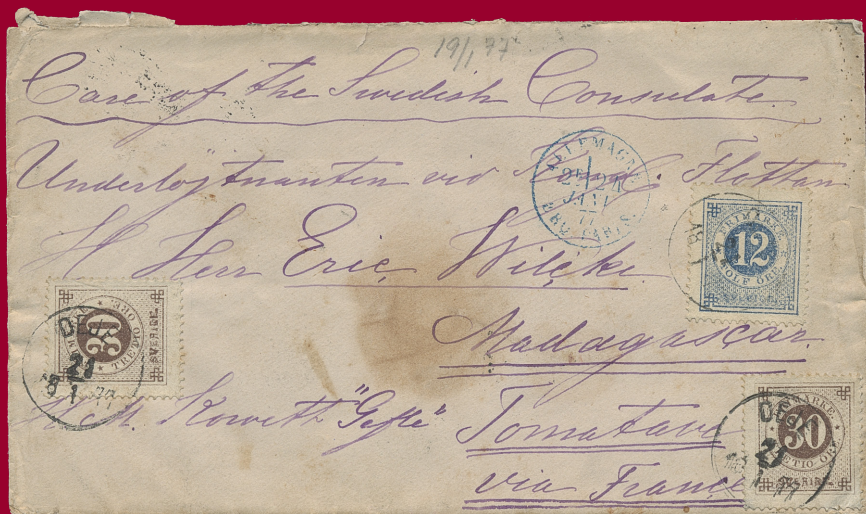 19/1 77
Care of the Swedish Consulate.
Underlöjtnanten vid Kongl. Flottan
H Herr Eric Wilcke
Madagascar.
H. M. Korvett "Gefle"
Tomatave
via France
ALLEMAGNE
25
JANV
77
PARIS
FRIMÄRKE
12
TOLF ÖRE
SVERIGE
30
TRETTIO ÖRE
SVERIGE.
23
1 77
FRIMÄRKE
30
TRETTIO ÖRE
SVERIGE.
23
77